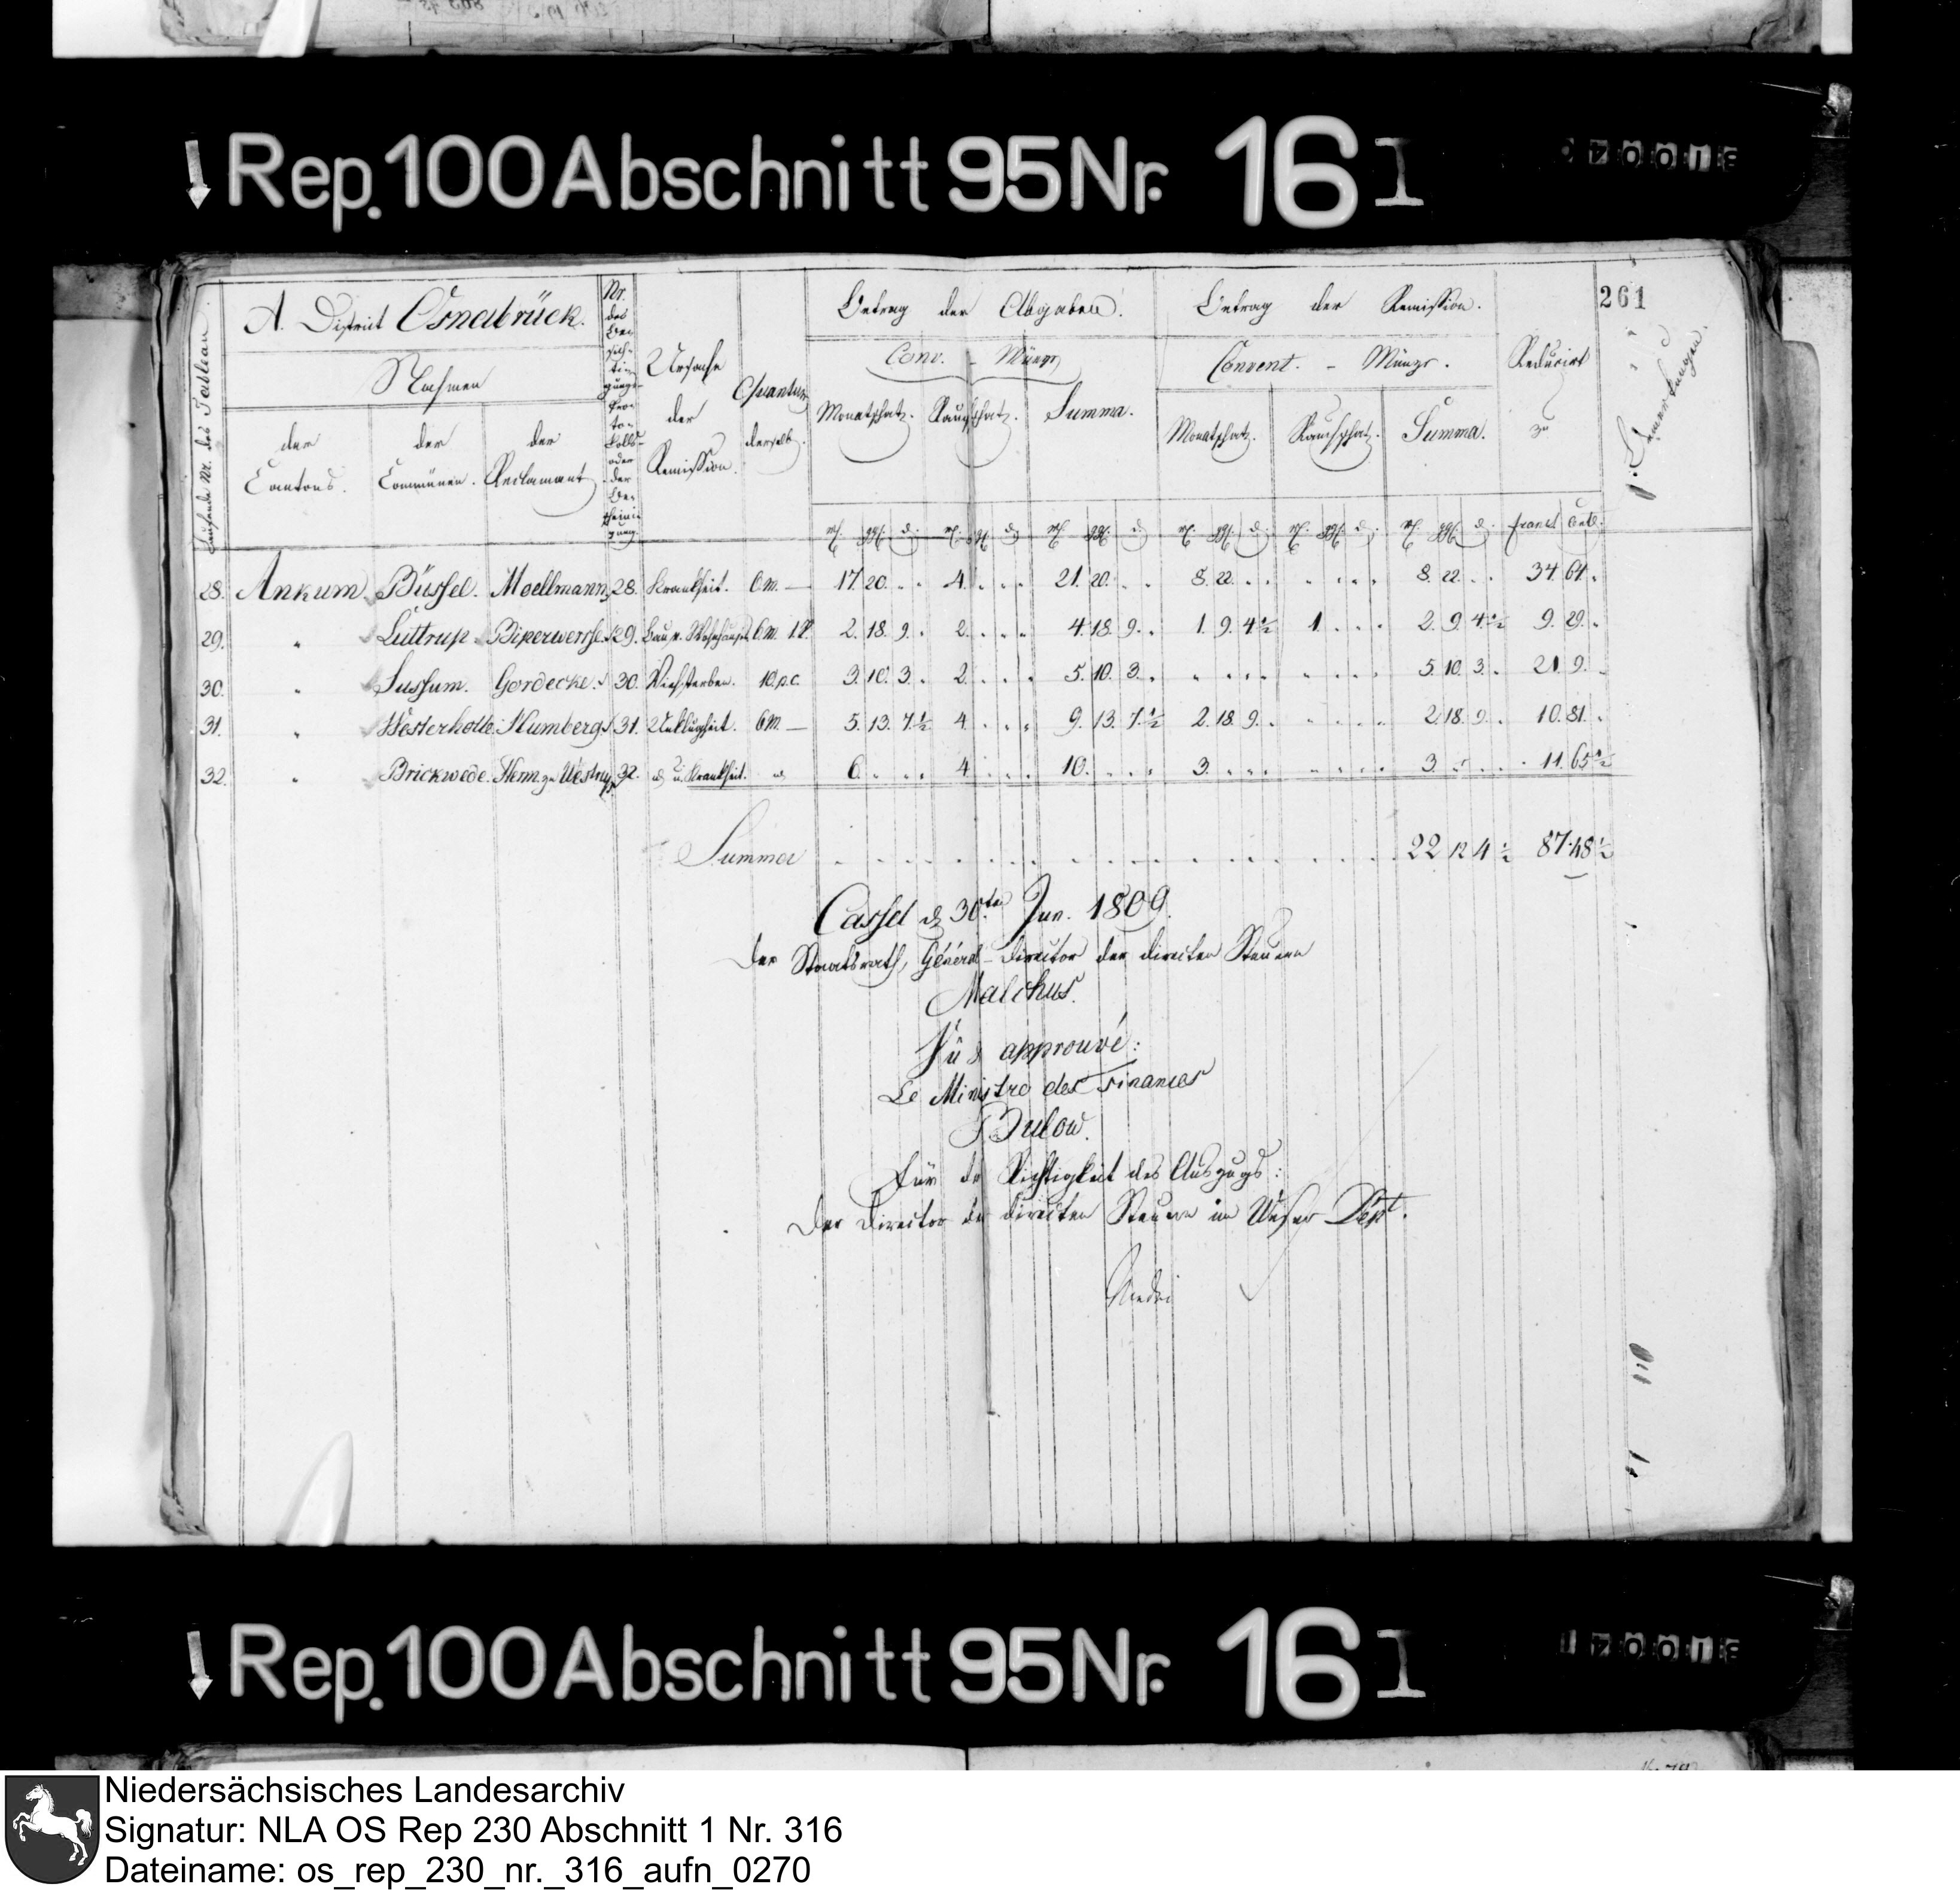 Rep. 100 Abschnitt 95 Nr. 16 I
261
A. District Osnabrück.
Nahmen
der Cantons.
der Communen.
der Reclamanten
Laufende Nr. des Tableau
Nr. des Besichtigungs-Protokolls oder der Bescheinigung.
Ursache der Remission.
Quantum derselb.
Betrag der Abgaben.
Conv. - Münze
Monatschatz. Rauchschatz. Summa.
Betrag der Remission.
Convent. - Münze.
Monatschatz. Rauchschatz. Summa.
Reducirt zu
Bemerkungen.
francs Cent.
28. Ankum Büssel. Moellmann 28. Krankheit. 6 M. — 17. 20. . . 4. . . . 21. 20. . . 8. 22. . . . . . . 8. 22. . . 34. 61.
29. " Luttrup 29. Bau e. Wohnhauses 6 M. 1. R. 2. 18. 9. . 2. . . . 4. 18. 9. . 1. 9. 4½ 1. . . . 2. 9. 4½ 9. 29.
30. " Sussum. Gordecke. 30. Viehsterben. 10. p.c. 3. 10. 3. . 2. . . . 5. 10. 3. . . . . . 5. 10. 3. . 21. 9.
31. " Westerholte. Numberg 31. Unglück. 6 M. — 5. 13. 7½ 4. . . . 9. 13. 7½ 2. 18. 9. . . . . . 2. 18. 9. . 10. 81.
32. " Brickwede. Herm. zu Westrup 32. u. Krankheit. 6. . . . 4. . . . 10. . . . 3. . . . . . . . 3. . . . 11. 65½
Summa . . . 22 12 4½ 87. 48½
Cassel d. 30ten Jun. 1809.
Der Staatsrath, Général-Director der directen Steuern
Malchus.
Vû & approuvé:
Le Ministre des Finances
Bulow.
Für die Richtigkeit des Auszugs:
Der Director der directen Steuern im Weser Dépt.
Rep. 100 Abschnitt 95 Nr. 16 I
Niedersächsisches Landesarchiv
Signatur: NLA OS Rep 230 Abschnitt 1 Nr. 316
Dateiname: os_rep_230_nr._316_aufn_0270